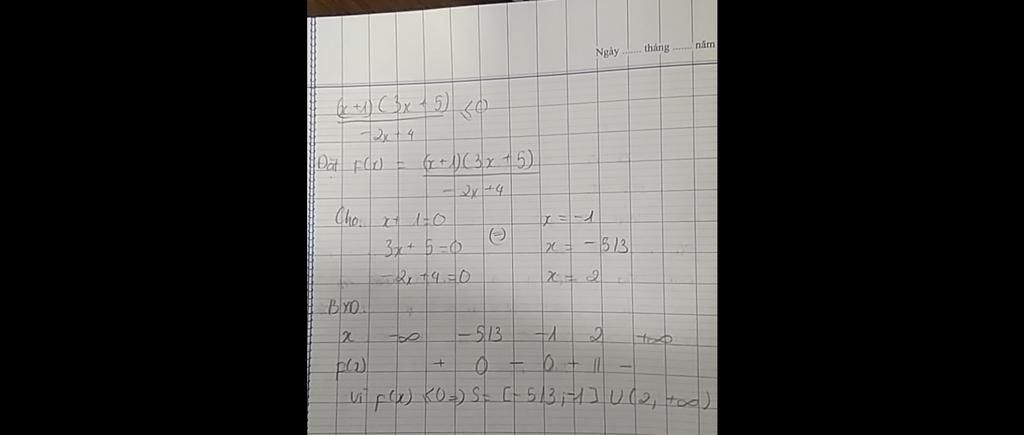 Ngày ....... tháng ....... năm
(x+1)(3x+5) / -2x+4 ≤0
Đặt f(x) = (x+1)(3x+5) / -2x+4
Cho: x+1=0 x=-1
3x+5=0 (=) x = -5/3
-2x+4=0 x = 2
BXD:
x -∞ -5/3 -1 2 +∞
f(x) + 0 - 0 + || -
Vì f(x) ≤0 =) S= [-5/3;-1] U (2, +∞)